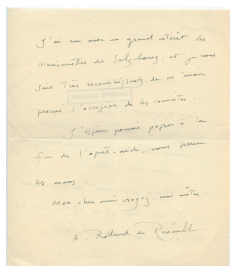 J'ai vu avec un grand intérêt les
Marionnettes de Salzbourg, et je vous
suis très reconnaissant de m'avoir
procuré l'occasion de les connaître.
J'espère pouvoir passer à la
fin de l'après-midi, vous serrer
les mains.
Mon cher ami, croyez-moi vôtre.
A. Rolland de Renéville